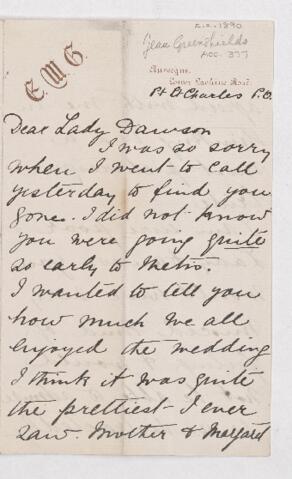 c.a. 1890
Jean Greenshields
Acc. 377
E.W.G.
Pt St Charles P.O.
Dear Lady Dawson
I was so sorry
when I went to call
yesterday to find you
gone. I did not know
you were going quite
so early to Metis.
I wanted to tell you
how much we all
enjoyed the wedding
I think it was quite
the prettiest I ever
saw. Mother &